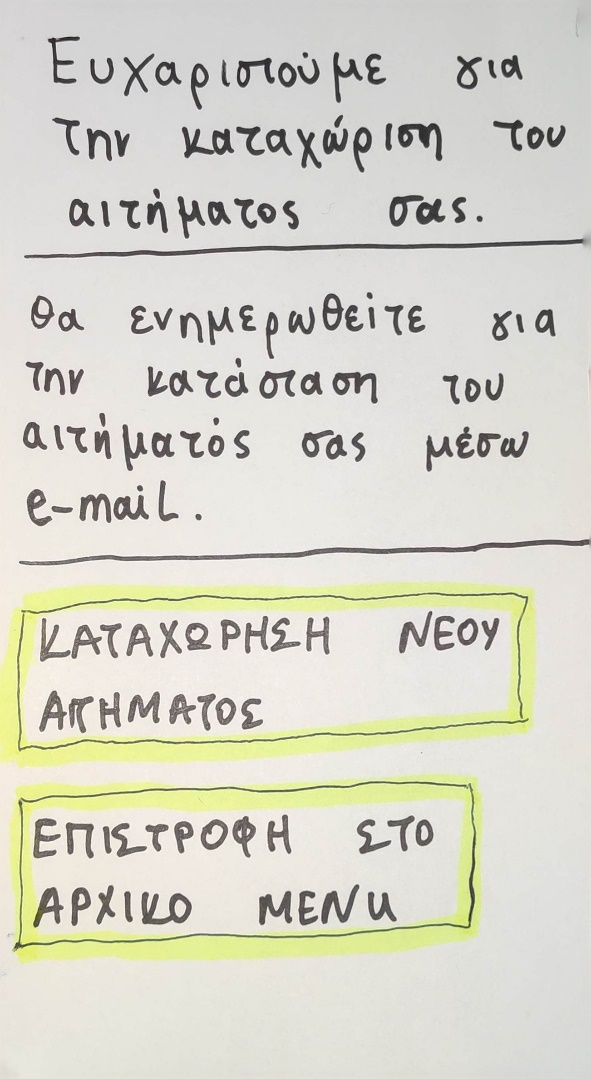 Ευχαριστούμε για
την καταχώριση του
αιτήματος σας.
Θα ενημερωθείτε για
την κατάσταση του
αιτήματός σας μέσω
e-mail.
ΚΑΤΑΧΩΡΗΣΗ ΝΕΟΥ
ΑΙΤΗΜΑΤΟΣ
ΕΠΙΣΤΡΟΦΗ ΣΤΟ
ΑΡΧΙΚΟ MENU